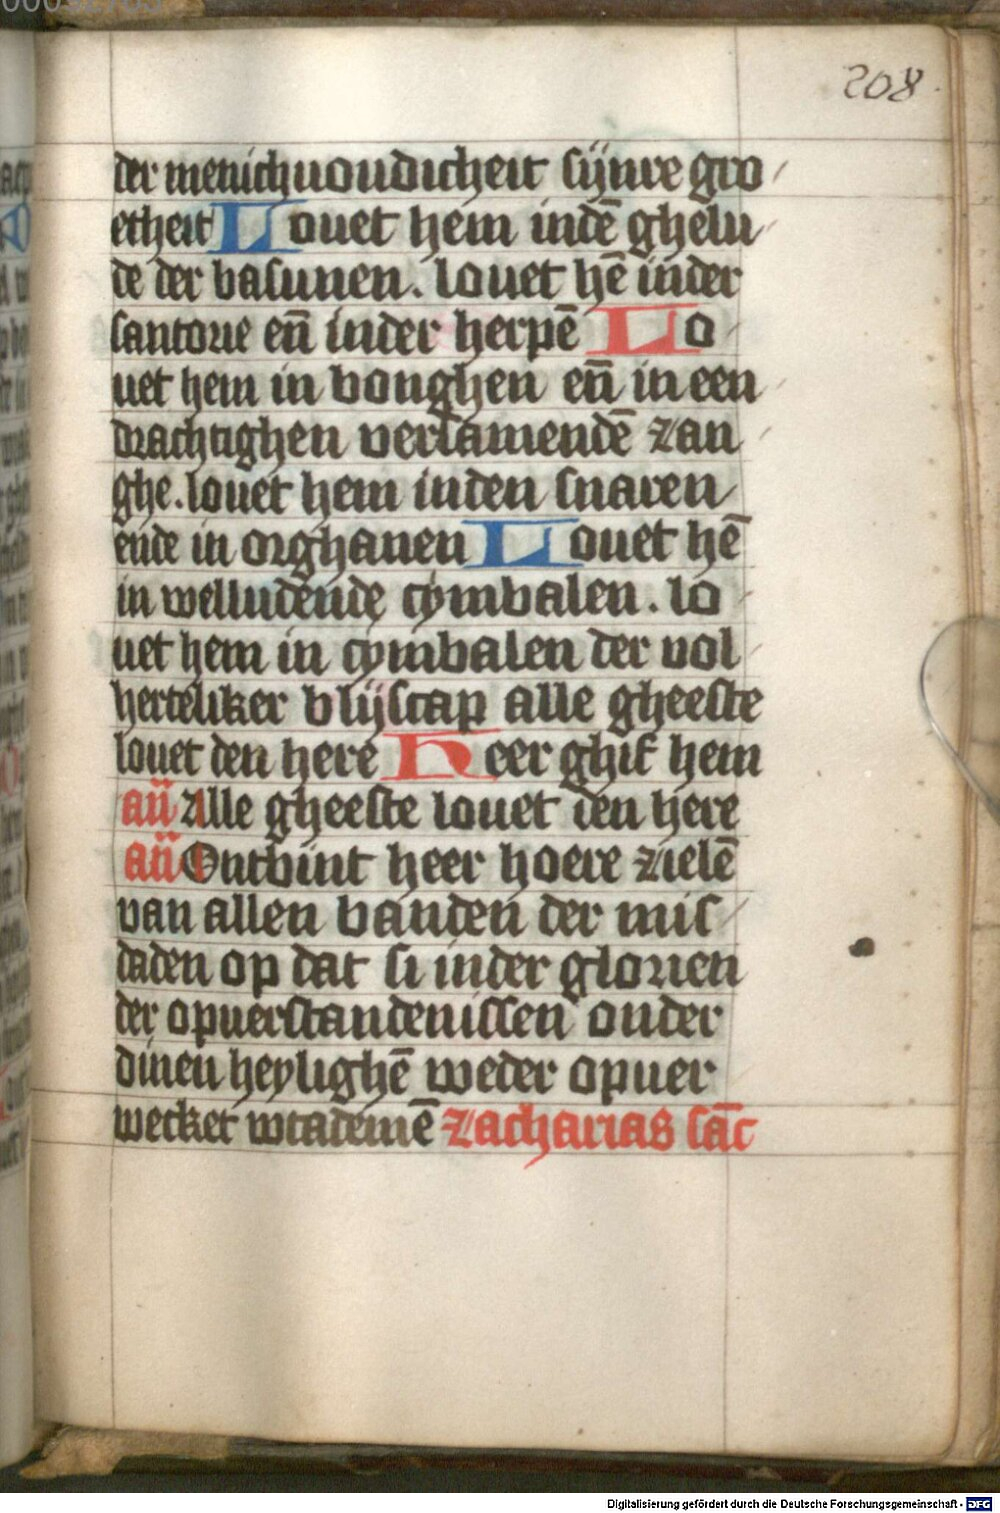 208
der menichuoudicheit sijnre gro
etheit Louet hem indē ghelu
de der basunen. louet hē inder
santorie en̄ inder herpē Lo
uet hem in bonghen en̄ in een
drachtighen versamendē zan
ghe. louet hem inden snaren
ende in orghanen Louet hē
in welludende cymbalen. lo
uet hem in cymbalen der vol
herteliker blijscap alle gheeste
louet den here Heer ghif hem
an̄ Alle gheeste louet den here
an̄ Ontbint heer hoere zielē
van allen banden der mis
daden op dat si inder glorien
der opuerstandenissen onder
dinen heylighē weder opuer
wecket wtademē zacharias sāc
Digitalisierung gefördert durch die Deutsche Forschungsgemeinschaft - DFG